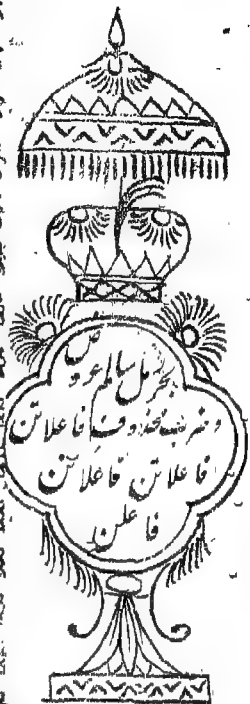 بحر رمل سالم عروض
وضرب محذوف فاعلاتن
فاعلاتن فاعلاتن
فاعلن